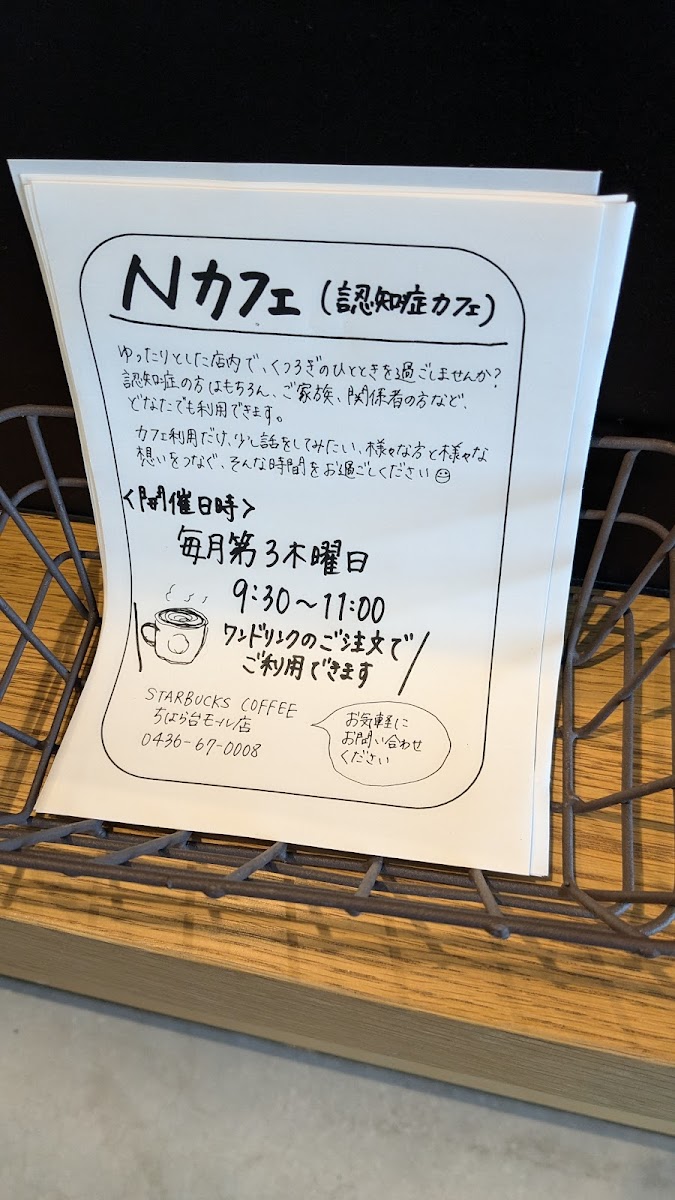 Nカフェ (認知症カフェ)
ゆったりとした店内で、くつろぎのひとときを過ごしませんか?
認知症の方はもちろん、ご家族、関係者の方など、
どなたでも利用できます。
カフェ利用だけ、少し話をしてみたい、様々な方と様々な
想いをつなぐ、そんな時間をお過ごしください☺
<開催日時>
毎月第3木曜日
9:30~11:00
ワンドリンクのご注文で
ご利用できます
STARBUCKS COFFEE
ちはら台モール店
0436-67-0008
お気軽に
お問い合わせ
ください